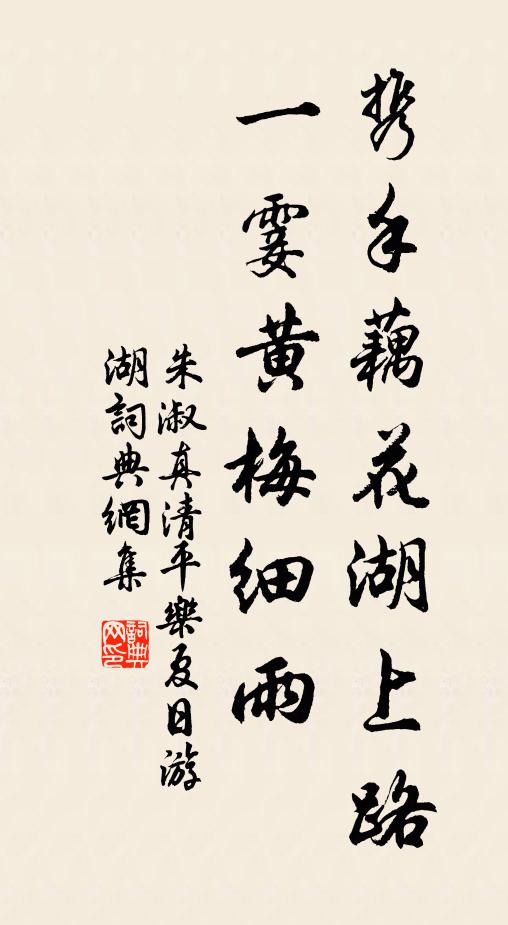 携手藕花湖上路
一霎黄梅細雨
朱淑真清平樂夏日游
湖詞典網集
詞典
网印